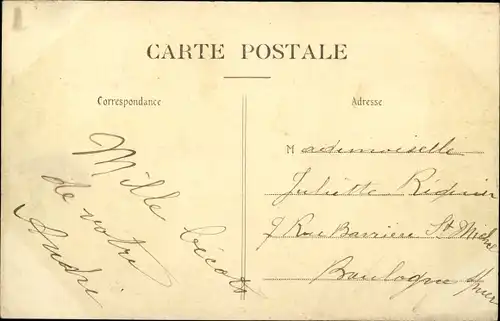 CARTE POSTALE
Correspondance
Mille bécots
de votre
André
Adresse
Mademoiselle
Juliette
7 Rue Barrière St Michel
Boulogne s/mer